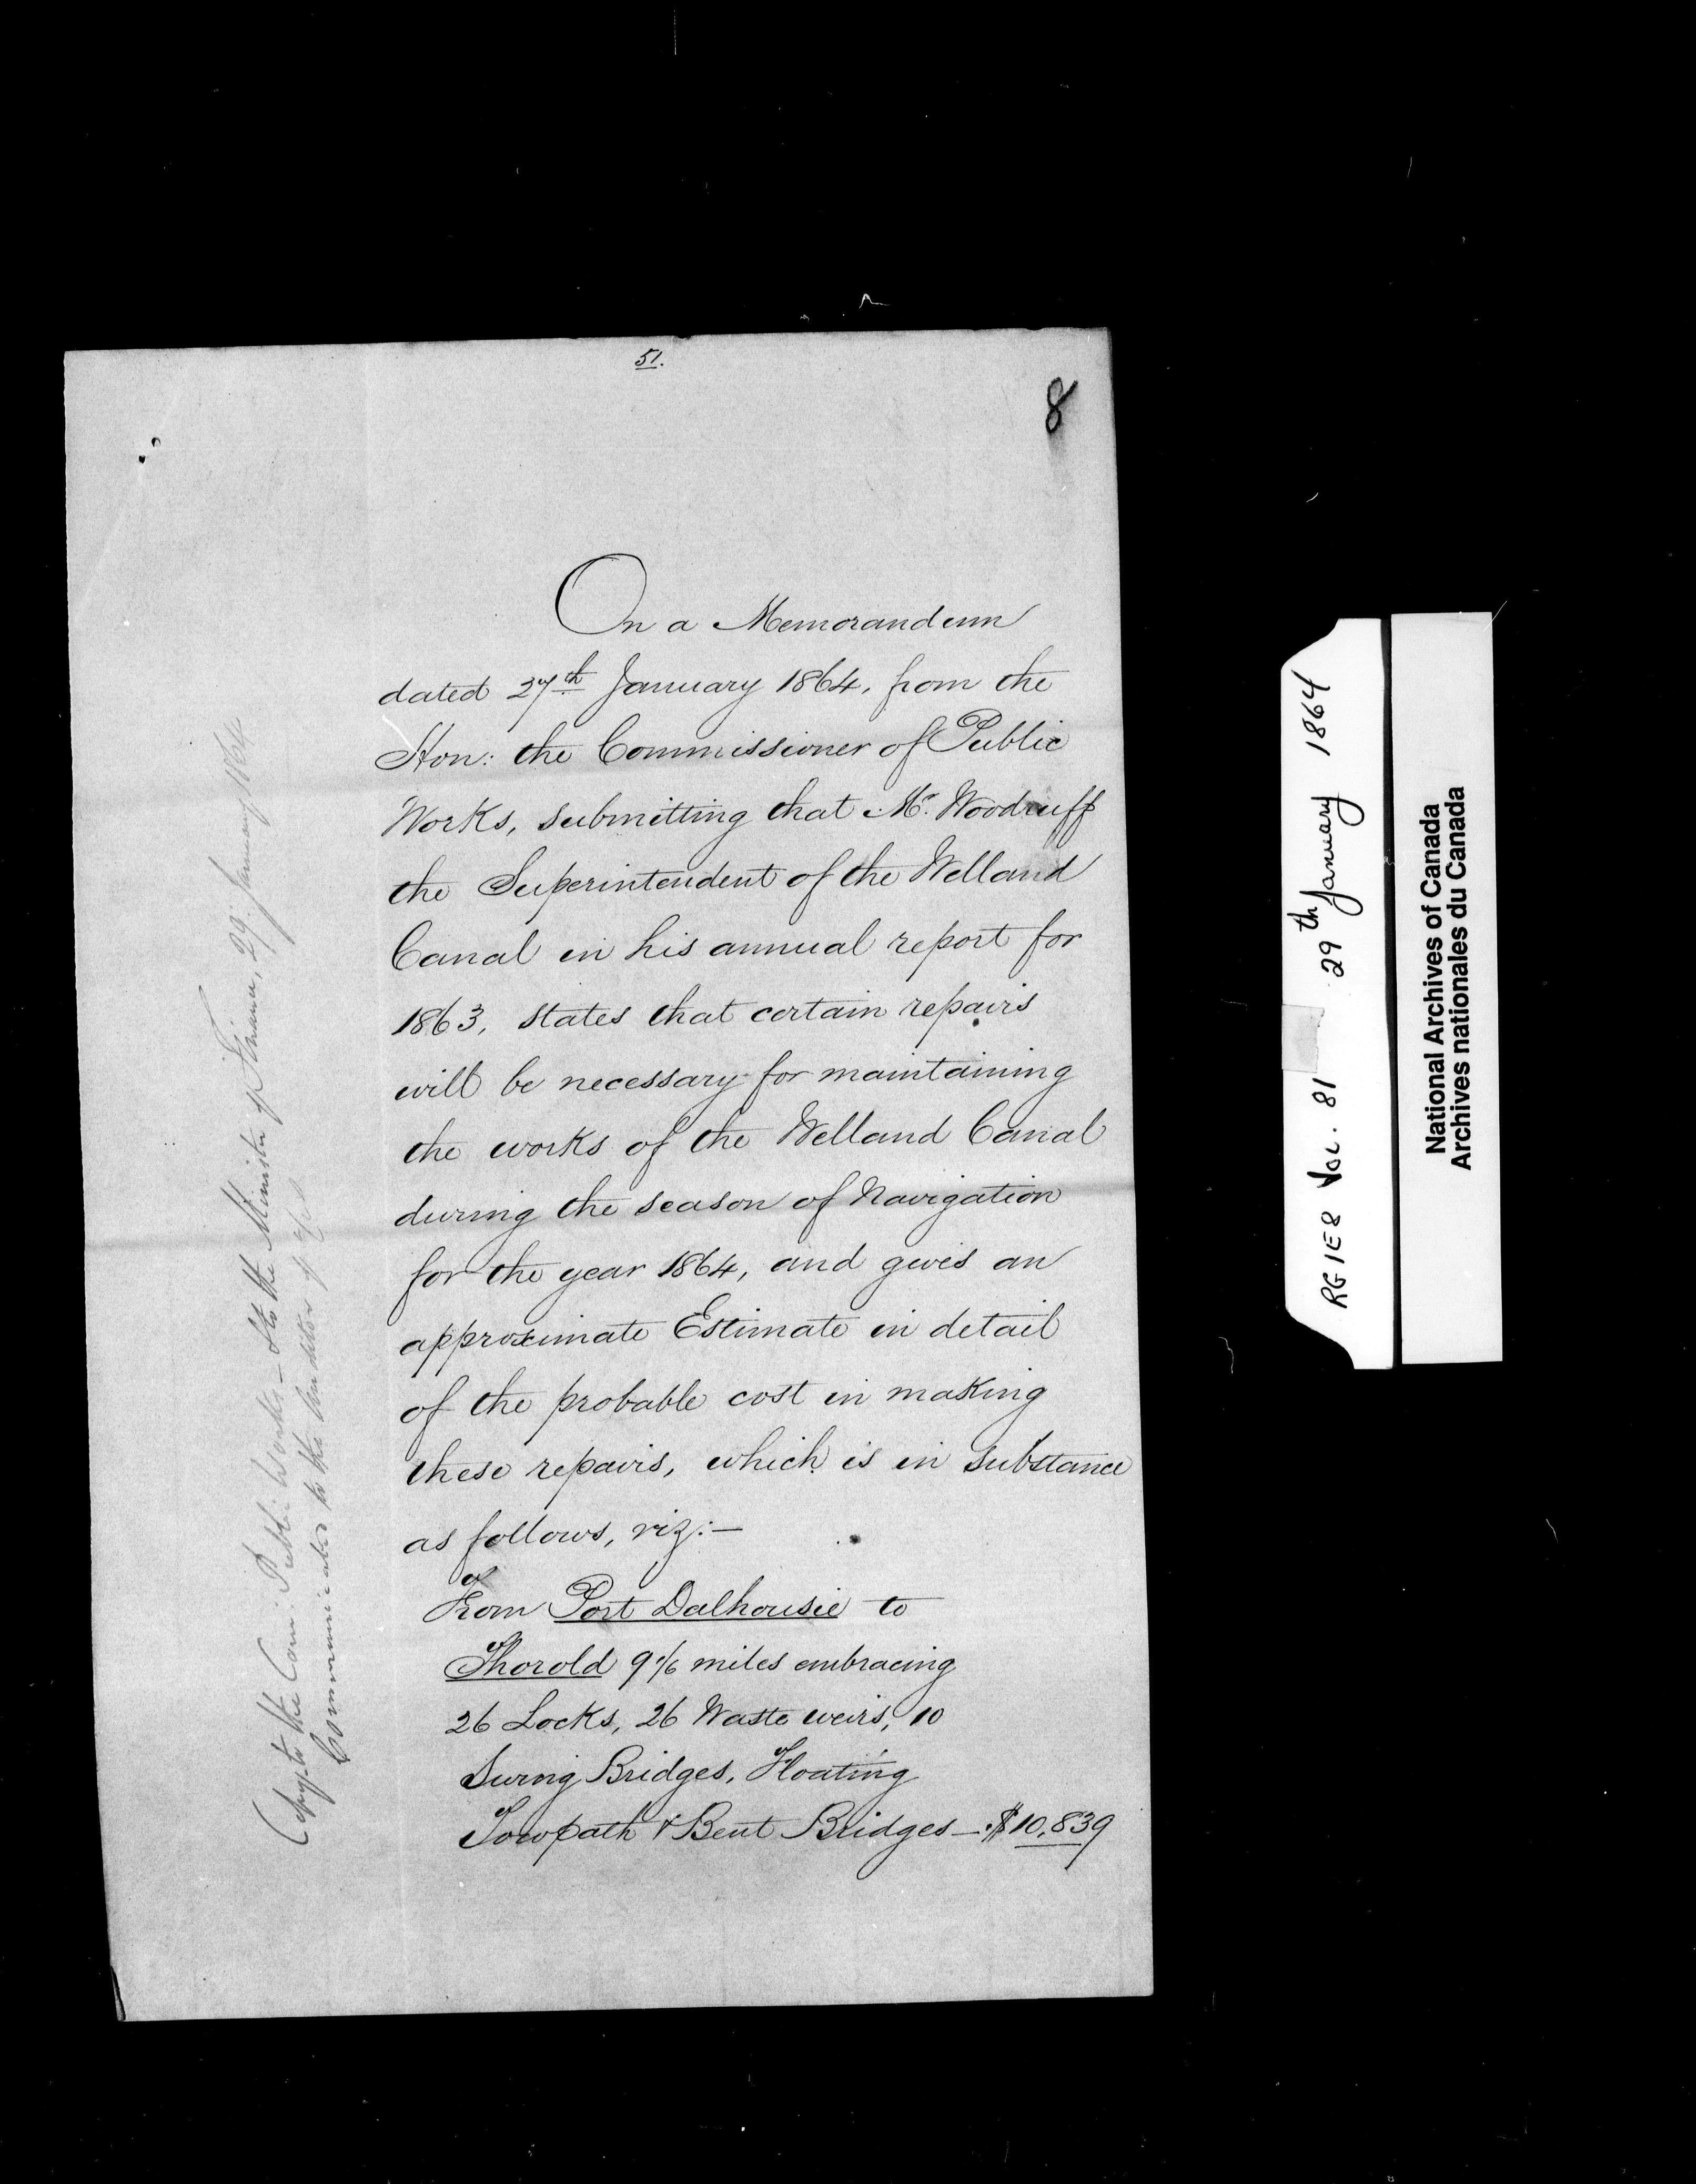 51.
8
On a Memorandum
dated 27th January 1864, from the
Hon: the Commissioner of Public
Works, submitting that Mr. Woodruff
the Superintendent of the Welland
Canal in his annual report for
1863, states that certain repairs
will be necessary for maintaining
the works of the Welland Canal
during the season of Navigation
for the year 1864, and gives an
approximate Estimate in detail
of the probable cost in making
these repairs, which is in substance
as follows, viz:—
From Port Dalhousie to
Thorold 9 1/6 miles embracing
26 Locks, 26 Waste weirs, 10
Swing Bridges, Floating
Towpath & Bent Bridges — $10,839
Copy to the Com: Public Works — to the Minister of Finance, 29. January 1864
Communicated to the Auditor
RG1E8 Vol. 81 29th January 1864
National Archives of Canada
Archives nationales du Canada